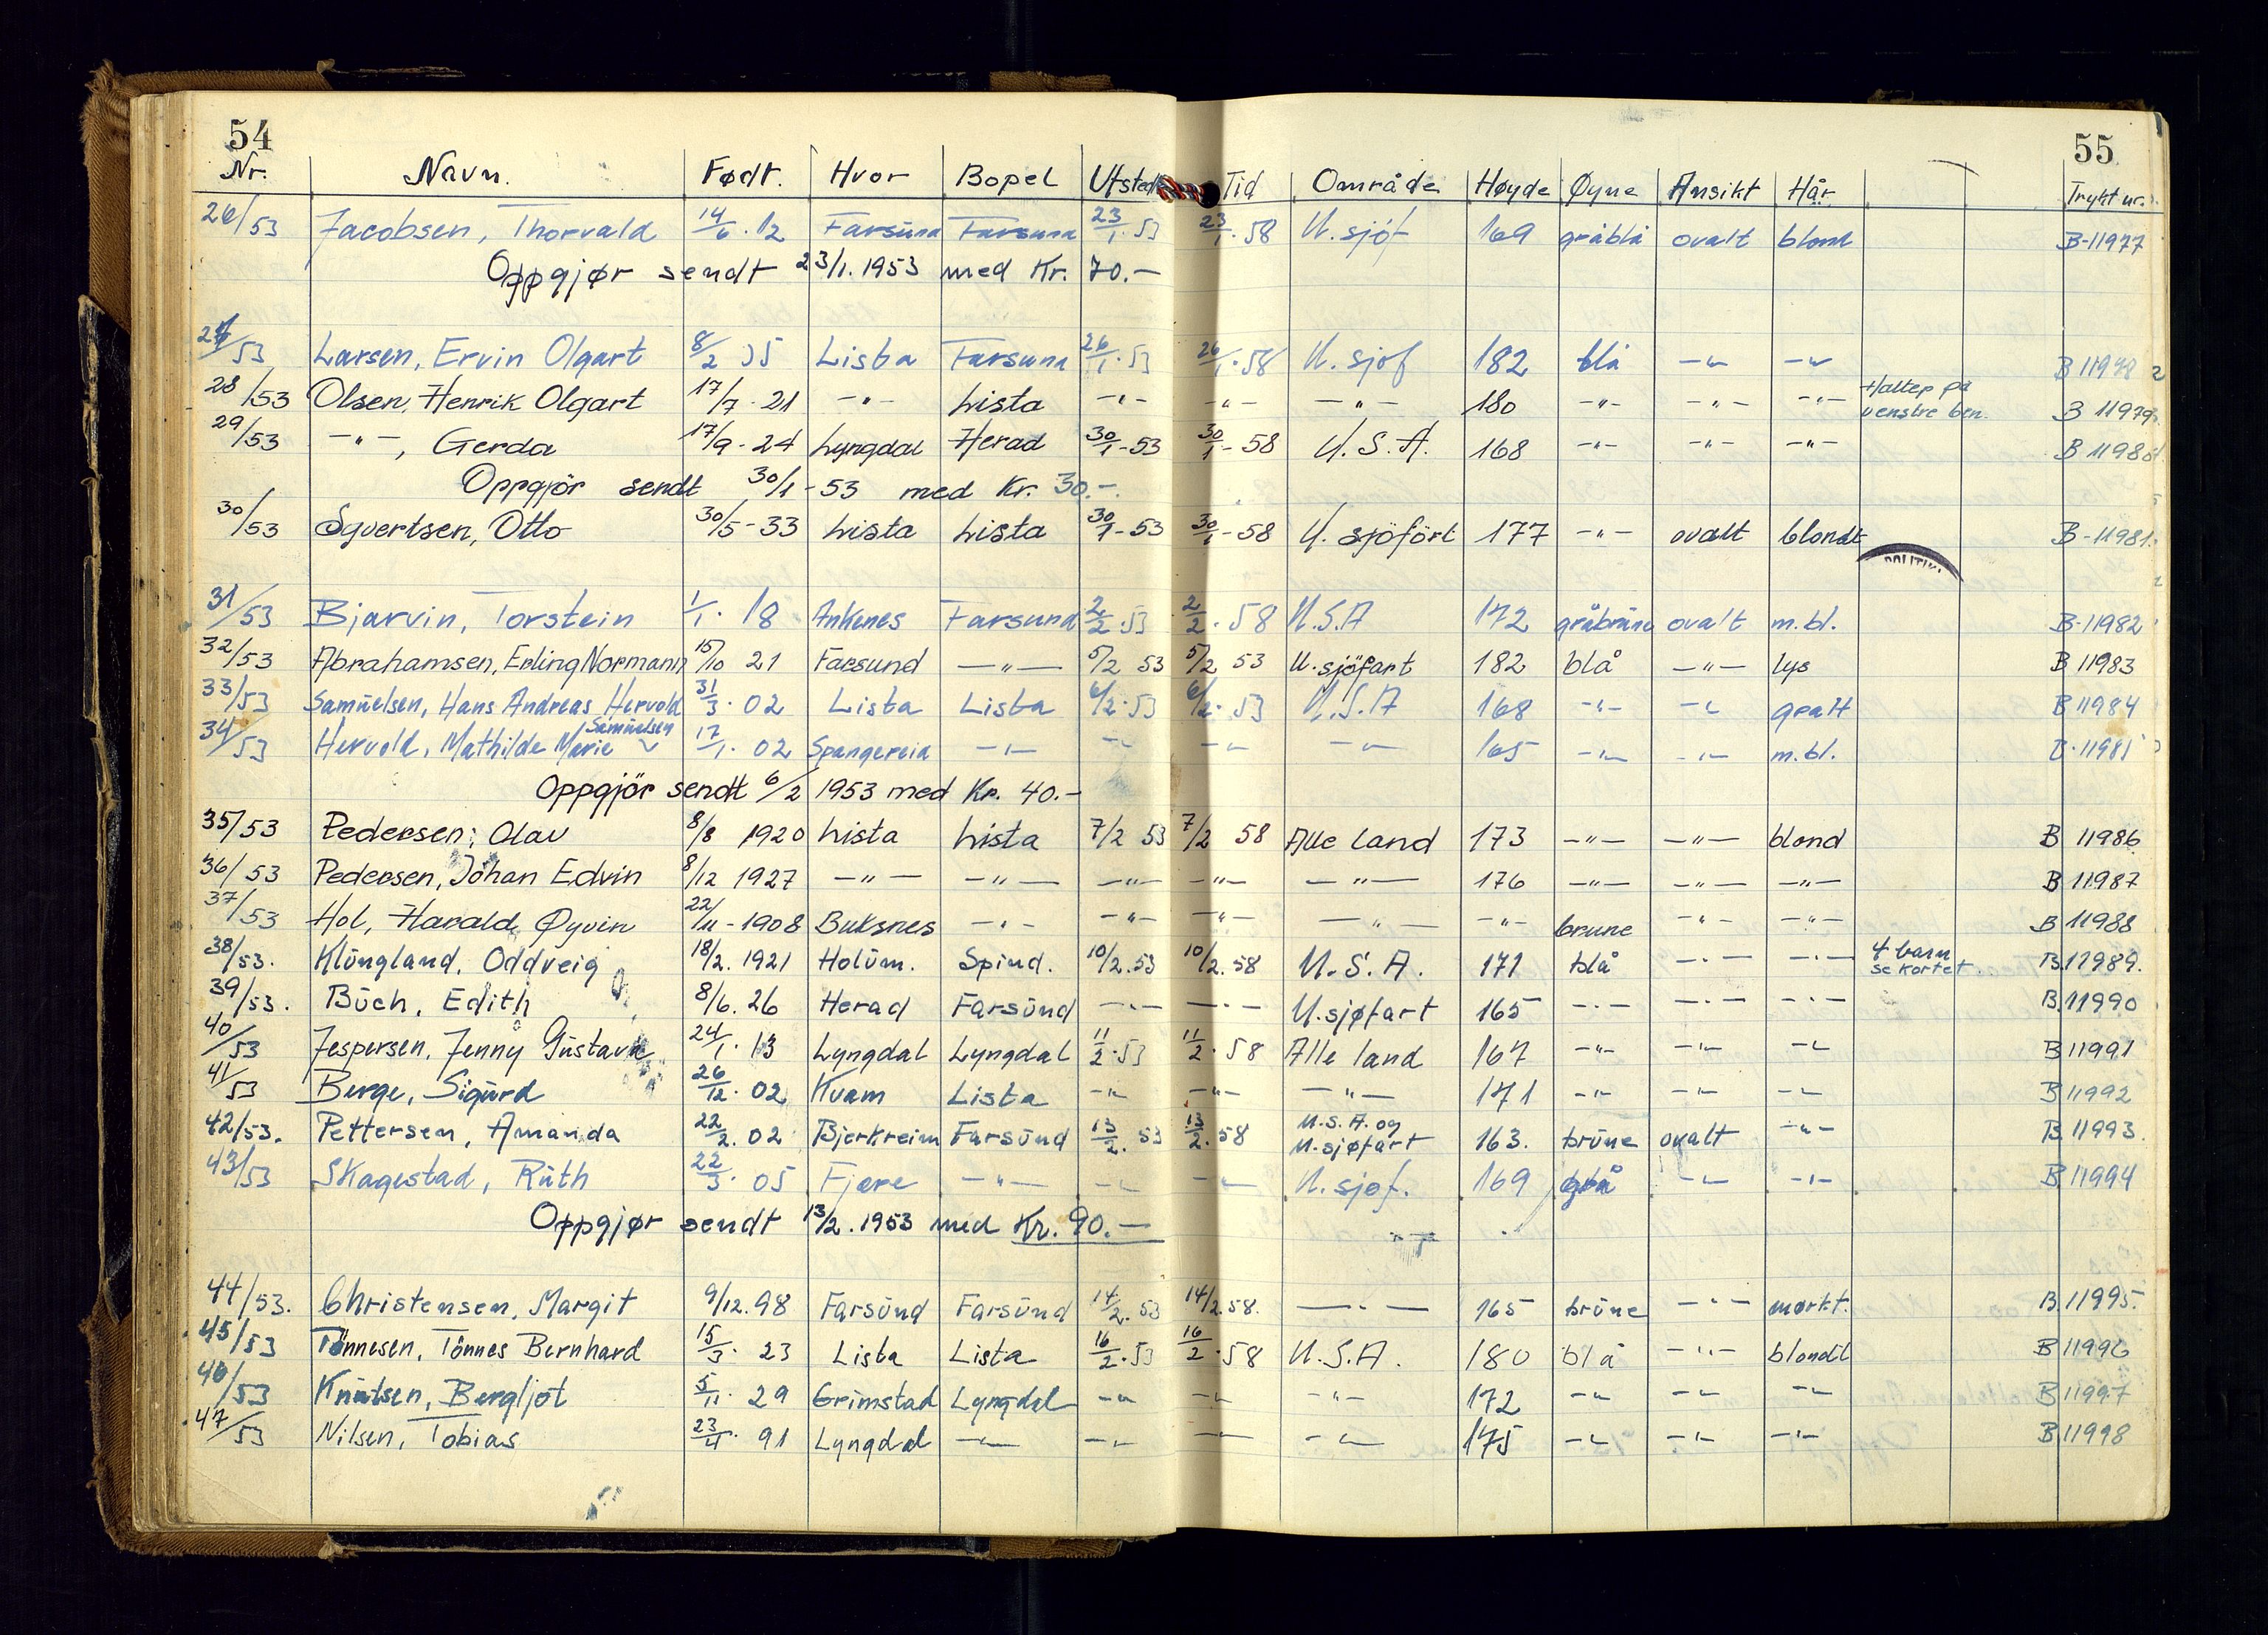 54
55
Nr. Navn. Født. Hvor Bopel Utstedt Tid Område Høyde Øyne Ansikt Hår Trykt nr.
26/53 Jacobsen, Thorvald 14/6.12 Farsund Farsund 23/1.53 23/1.58 U.sjöf 169 gråblå ovalt blond B-11977
Oppgjør sendt 23/1.1953 med Kr. 70.-
27/53 Larsen, Ervin Olgart 8/2 35 Lista Farsund 26/1.53 26/1.58 U.sjöf 182 blå -"- -"-
28/53 Olsen, Henrik Olgart 17/7-21 -"- Lista -"- -"- -"- 180 -"- -"- -"- Halter på venstre ben. B 11979
29/53 -"-, Gerda 17/9-24 Lyngdal Herad 30/1-53 30/1-58 U.S.A. 168 -"- -"- -"- B 11980
Oppgjör sendt 30/1-53 med Kr. 30.-
30/53 Syvertsen, Otto 30/5-33 Lista Lista 30/1-53 30/1-58 U. sjöfört 177 -"- ovalt blondt B-11981
31/53 Bjarvin, Torstein 1/1. 18 Ankenes Farsund 2/2.53 2/2.58 U.S.A 172 gråbrune ovalt m.bl. B-11982
32/53 Abrahamsen, Erling Normann 15/10 21 Farsund -"- 5/2 53 5/2 53 U.sjöfart 182 blå -"- lys B 11983
33/53 Samuelsen, Hans Andreas Hervold 31/3.02 Lista Lista 6/2.53 6/2.53 U.S.A 168 -"- -"- grått B 11984
34/53 Hervold, Mathilde Marie Samuelsen 17/1.02 Spangereid -"- -"- -"- -"- 165 -"- -"- m.bl.
Oppgjör sendt 6/2 1953 med Kr. 40.-
35/53 Pedersen, Olav 8/8 1920 Lista Lista 7/2 53 7/2 58 Alle land 173 -"- -"- blond B 11986
36/53 Pedersen, Johan Edvin 8/12 1927 -"- -"- -"- -"- -"- 176 -"- -"- -"- B 11987
37/53 Hol, Harald Øyvin 22/11-1908 Buksnes -"- -"- -"- -"- -"- brune -"- -"- B 11988
38/53. Klüngland, Oddveig 18/2.1921 Holüm. Spind. 10/2.53 10/2.58 U.S.A. 171 blå -"- -"- 4 barn se kortet. B.11989.
39/53. Büch, Edith 8/6.26 Herad Farsünd -"- -"- U.sjøfart 165 -"- -"- -"- B.11990
40/53 Jespersen, Jenny Güstava 24/1.13 Lyngdal Lyngdal 11/2.53 11/2.58 Alle land 167 -"- -"- -"- B 11991
41/53 Berge, Sigürd 26/12.02 Kvam Lista -"- -"- -"- 171 -"- -"- -"- B 11992
42/53. Pettersen, Amanda 22/2.02 Bjerkreim Farsünd 13/2.53 13/2.58 U.S.A. og U.sjøfart 163. brüne ovalt -"- B.11993.
43/53 Skagestad, Rüth 22/3.05 Fjære -"- -"- -"- U.sjøf. 169 -"- -"- B 11994
Oppgjør sendt 13/2.1953 med Kr. 90.-
44/53. Christensen, Margit 9/12.98 Farsünd Farsünd 14/2.53 14/2.58. -"- 165 brüne -"- mørkt. B.11995.
45/53 Tönnesen, Tönnes Bernhard 15/3.23 Lista Lista 16/2.53 16/2.58 U.S.A. 180 blå -"- blondt B 11996
46/53 Knütsen, Bergljot 5/11.29 Grimstad Lyngdal -"- -"- -"- 172 -"- -"- -"- B 11997
47/53 Nilsen, Tobias 23/4.91 Lyngdal -"- -"- -"- -"- 175 -"- -"- -"- B 11998